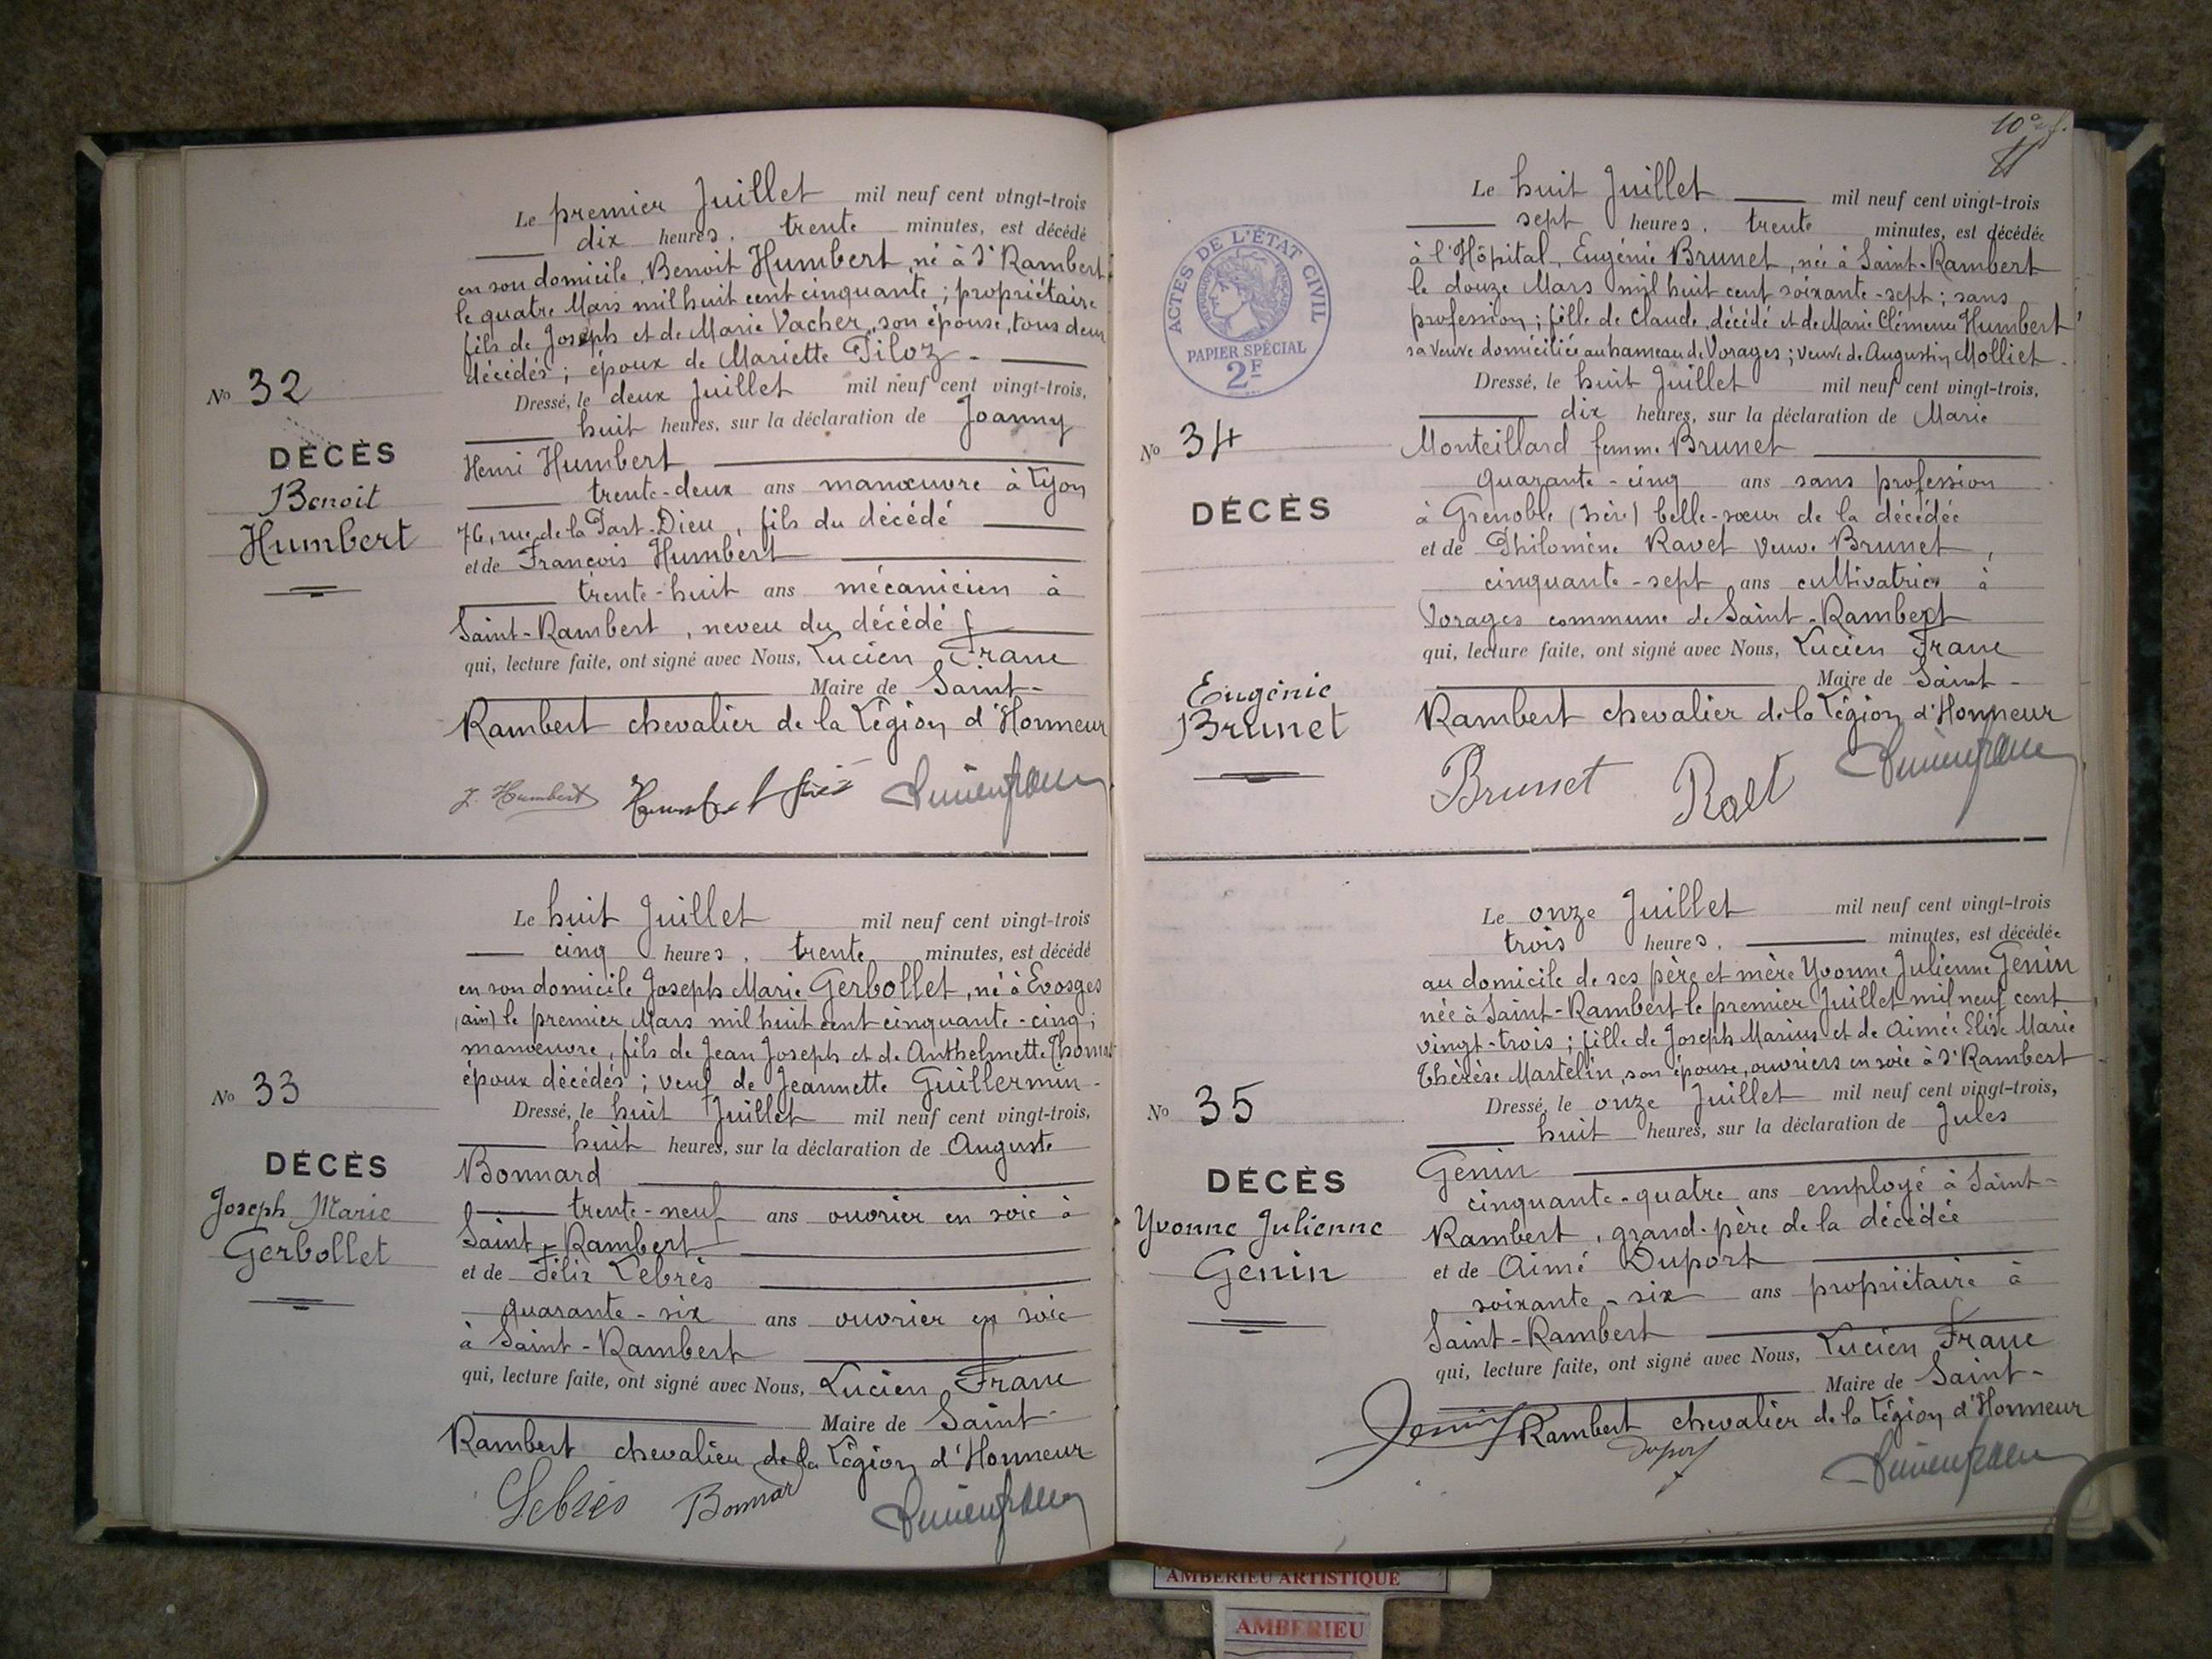 Le premier Juillet mil neuf cent vingt-trois
dix heures, trente minutes, est décédé
en son domicile, Benoit Humbert, né à St Rambert
le quatre Mars mil huit cent cinquante; propriétaire
fils de Joseph et de Marie Vacher, son épouse, tous deux
décédés; époux de Mariette Piloz
No 32
Dressé, le deux Juillet mil neuf cent vingt-trois,
huit heures, sur la déclaration de Joanny
DÉCÈS
Benoit
Humbert
Henri Humbert
trente-deux ans manœuvre à Lyon
76, rue de la Part-Dieu, fils du décédé
et de François Humbert
trente-huit ans mécanicien à
Saint-Rambert, neveu du décédé
qui, lecture faite, ont signé avec Nous, Lucien Franc
Maire de Saint-
Rambert chevalier de la Légion d'Honneur
J. Humbert
Le huit Juillet mil neuf cent vingt-trois
cinq heures, trente minutes, est décédé
en son domicile Joseph Marie Gerbollet, né à Evosges
(ain) le premier Mars mil huit cent cinquante-cinq;
manœuvre, fils de Jean Joseph et de Anthelmette Thomas
époux décédés; veuf de Jeannette Guillermin-
No 33
Dressé, le huit Juillet mil neuf cent vingt-trois,
huit heures, sur la déclaration de Auguste
DÉCÈS
Joseph Marie
Gerbollet
Bonnard
trente-neuf ans ouvrier en soie à
Saint-Rambert
et de Félix Lebrés
quarante-six ans ouvrier en soie
à Saint-Rambert
qui, lecture faite, ont signé avec Nous, Lucien Franc
Maire de Saint-
Rambert chevalier de la Légion d'Honneur
Lebrés Bonnard
10e f.
Le huit Juillet mil neuf cent vingt-trois
sept heures, trente minutes, est décédée
à l'Hôpital, Eugénie Brunet, née à Saint-Rambert
le douze Mars mil huit cent soixante-sept; sans
profession; fille de Claude, décédé et de Marie Clémence Humbert
sa veuve domiciliée au hameau de Vorages; veuve de Augustin Molliet
ACTES DE L'ÉTAT CIVIL
RÉPUBLIQUE FRANÇAISE
PAPIER SPÉCIAL
2F
Dressé, le huit Juillet mil neuf cent vingt-trois,
dix heures, sur la déclaration de Marie
No 34
DÉCÈS
Eugénie
Brunet
Monteillard femme Brunet
quarante-cinq ans sans profession
à Grenoble (Isère) belle-sœur de la décédée
et de Philomène Ravet veuve Brunet,
cinquante-sept ans cultivatrice à
Vorages commune de Saint-Rambert
qui, lecture faite, ont signé avec Nous, Lucien Franc
Maire de Saint-
Rambert chevalier de la Légion d'Honneur
Brunet
Le onze Juillet mil neuf cent vingt-trois
trois heures, minutes, est décédée
au domicile de ses père et mère Yvonne Julienne Genin
née à Saint-Rambert le premier Juillet mil neuf cent
vingt-trois; fille de Joseph Marius et de Aimée Elise Marie
Thérèse Martelin, son épouse, ouvriers en soie à St Rambert
No 35
Dressé, le onze Juillet mil neuf cent vingt-trois,
huit heures, sur la déclaration de Jules
DÉCÈS
Yvonne Julienne
Genin
Genin
cinquante-quatre ans employé à Saint-
Rambert, grand-père de la décédée
et de Aimé Duport
soixante-six ans propriétaire à
Saint-Rambert
qui, lecture faite, ont signé avec Nous, Lucien Franc
Maire de Saint-
Rambert chevalier de la Légion d'Honneur
Genin Duport
AMBERIEU ARTISTIQUE
AMBERIEU